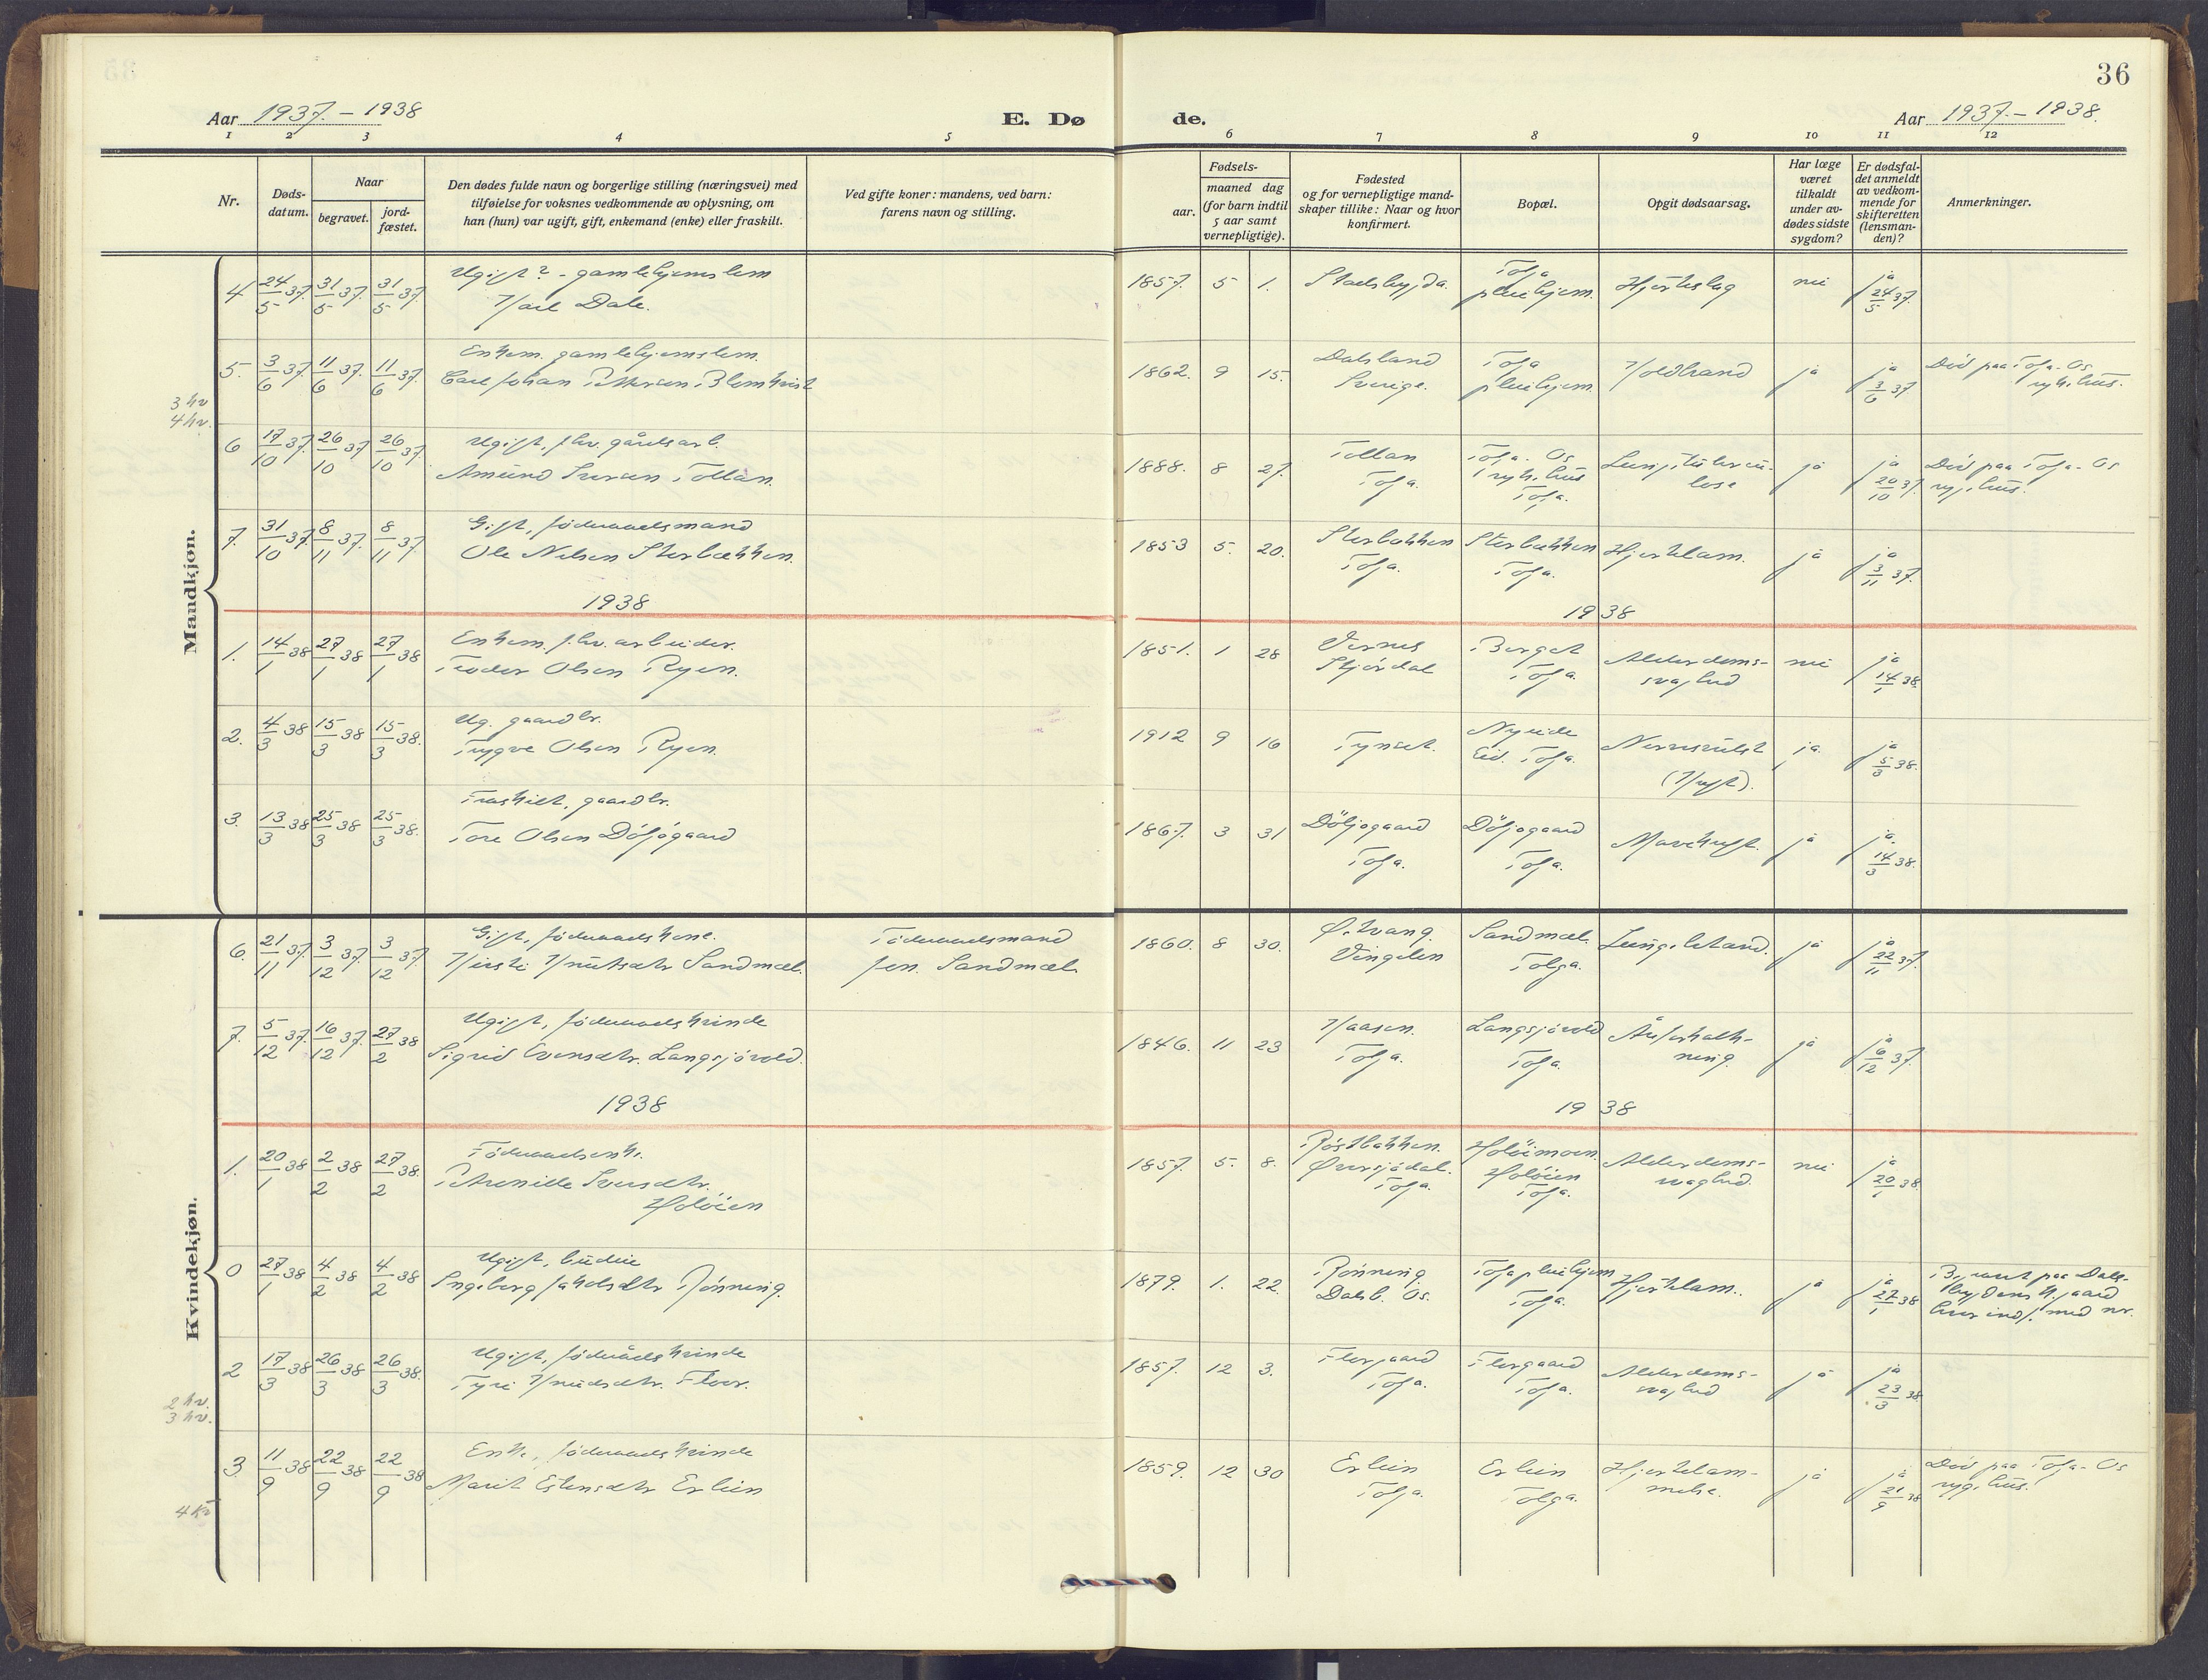 36
Aar 1937. – 1938
E. Dø
de.
Aar 1937. – 1938.
1 2 3 4 5 6 7 8 9 10 11 12
Nr.
Døds-
datum.
Naar
begravet.
jord-
fæstet.
Den dødes fulde navn og borgerlige stilling (næringsvei) med
tilføielse for voksnes vedkommende av oplysning, om
han (hun) var ugift, gift, enkemand (enke) eller fraskilt.
Ved gifte koner: mandens, ved barn:
farens navn og stilling.
Fødsels-
aar.
maaned dag
(for barn indtil
5 aar samt
vernepligtige).
Fødested
og for vernepligtige mand-
skaper tillike: Naar og hvor
konfirmert.
Bopæl.
Opgit dødsaarsag.
Har læge
været
tilkaldt
under av-
dødes sidste
sygdom?
Er dødsfal-
det anmeldt
av vedkom-
mende for
skifteretten
(lensman-
den)?
Anmerkninger.
Mandkjøn.
4 24/5 37. 31/5 37. 31/5 37.
Ugift? - gamlehjemslem
Karl Dale.
1857. 5 1. Stadsbygda.
Tolga
pleiehjem.
Hjerteslag nei ja
24/5 37.
5. 3/6 37. 11/6 37. 11/6 37.
Enkem. gamlehjemslem.
Carl Johan Pettersen Blomkvist
1862. 9 15.
Dalsland
Sverige.
Tolga
pleiehjem.
Koldbrand ja ja
3/6 37
Död paa Tolga-Os
sykehus.
3 kv
4 kv.
6 17/10 37. 26/10 37. 26/10 37.
Ugift, fhv. gårdsarb.
Amund Iversen Tollan.
1888. 8 27.
Tollan
Tolga.
Tolga-Os
sykehus
Tolga.
Lungetuberku-
lose
ja ja
20/10 37.
Död paa Tolga-Os
sygehus.
7. 31/10 37. 8/11 37. 8/11 37.
Gift, föderaadsmand
Ole Nilsen Storbækken.
1853 5. 20.
Storbekken
Tolga.
Storbekken
Tolga.
Hjertelam. ja ja
3/11 37.
1938
1938
1. 14/1 38 27/1 38 27/1 38
Enkem. fhv. arbeider.
Teodor Olsen Ryen.
1851. 1 28
Vernes
Stjördal
Berget
Tolga.
Alderdoms-
svaghed
nei ja
14/1 38.
2. 4/3 38 15/3 38 15/3 38.
Ug. gaardbr.
Trygve Olsen Ryen.
1912 9 16 Tynset.
Nyeide
Eid. Tolga.
(Kræft).
ja. ja
5/3 38.
3. 13/3 38 25/3 38 25/3 38.
Fraskilt, gaardbr.
Tore Olsen Döljögaard
1867. 3 31
Döljøgaard
Tolga.
Döljøgaard
Tolga.
Mavekræft. ja ja
14/3 38.
Kvindekjøn.
6. 21/11 37. 3/12 37. 3/12 37.
Gift, föderaadskone.
Kirsti Knutsdtr Sandmæl.
Föderaadsmand
Jon. Sandmæl.
1860. 8 30.
Ø. Hvang.
Vingelen
Sandmæl.
Tolga.
Lungebetænd. ja ja
22/11 37.
7. 5/12 37. 16/12 37. 27/2 38
Ugift, föderaadskvinde
Sigrid Evensdtr. Langsjövold.
1846. 11 23
Kaasen.
Tolga.
Langsjövold
Tolga.
Åreforkalk-
ning.
ja ja
6/12 37.
1938
1938
1. 20/1 38 2/2 38 27/2 38.
Föderaadsenke.
Petronille Iversdtr.
Holöien
1857. 5. 8.
Röstbakken.
Øversjödal.
Tolga.
Holöimoen
Holöien
Tolga.
Alderdoms-
svaghed.
nei ja
20/1 38.
0 27/1 38 4/2 38 4/2 38
Ugift, budeie
Ingeborg Jakobsdtr Rönning.
1879. 1. 22.
Rönning.
Dalsb. Os.
Tolga pleiehjem
Tolga.
Hjertelam.. ja ja
27/1 38
Begravet paa Dals-
bygdens K.gaard
hvor indf. med nr.
2 17/3 38 26/3 38 26/3 38.
Ugift, föderådskvinde
Tyri Knudsdtr. Floor.
1857. 12 3.
Florgaard
Tolga.
Florgaard
Tolga.
Alderdoms-
svaghed
ja ja
23/3 38
2 kv.
3 kv.
3. 11/9 38 22/9 38 22/9 38
Enke, föderaadskvinde
Marit Estensdtr Erlien
1859. 12 30
Erlien
Tolga.
Erlien
Tolga.
Hjertelam-
melse.
ja ja
21/9 38
Död paa Tolga-Os
sygehus.
4 kv